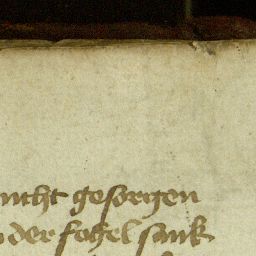 nicht gesorgen
der fogel sank